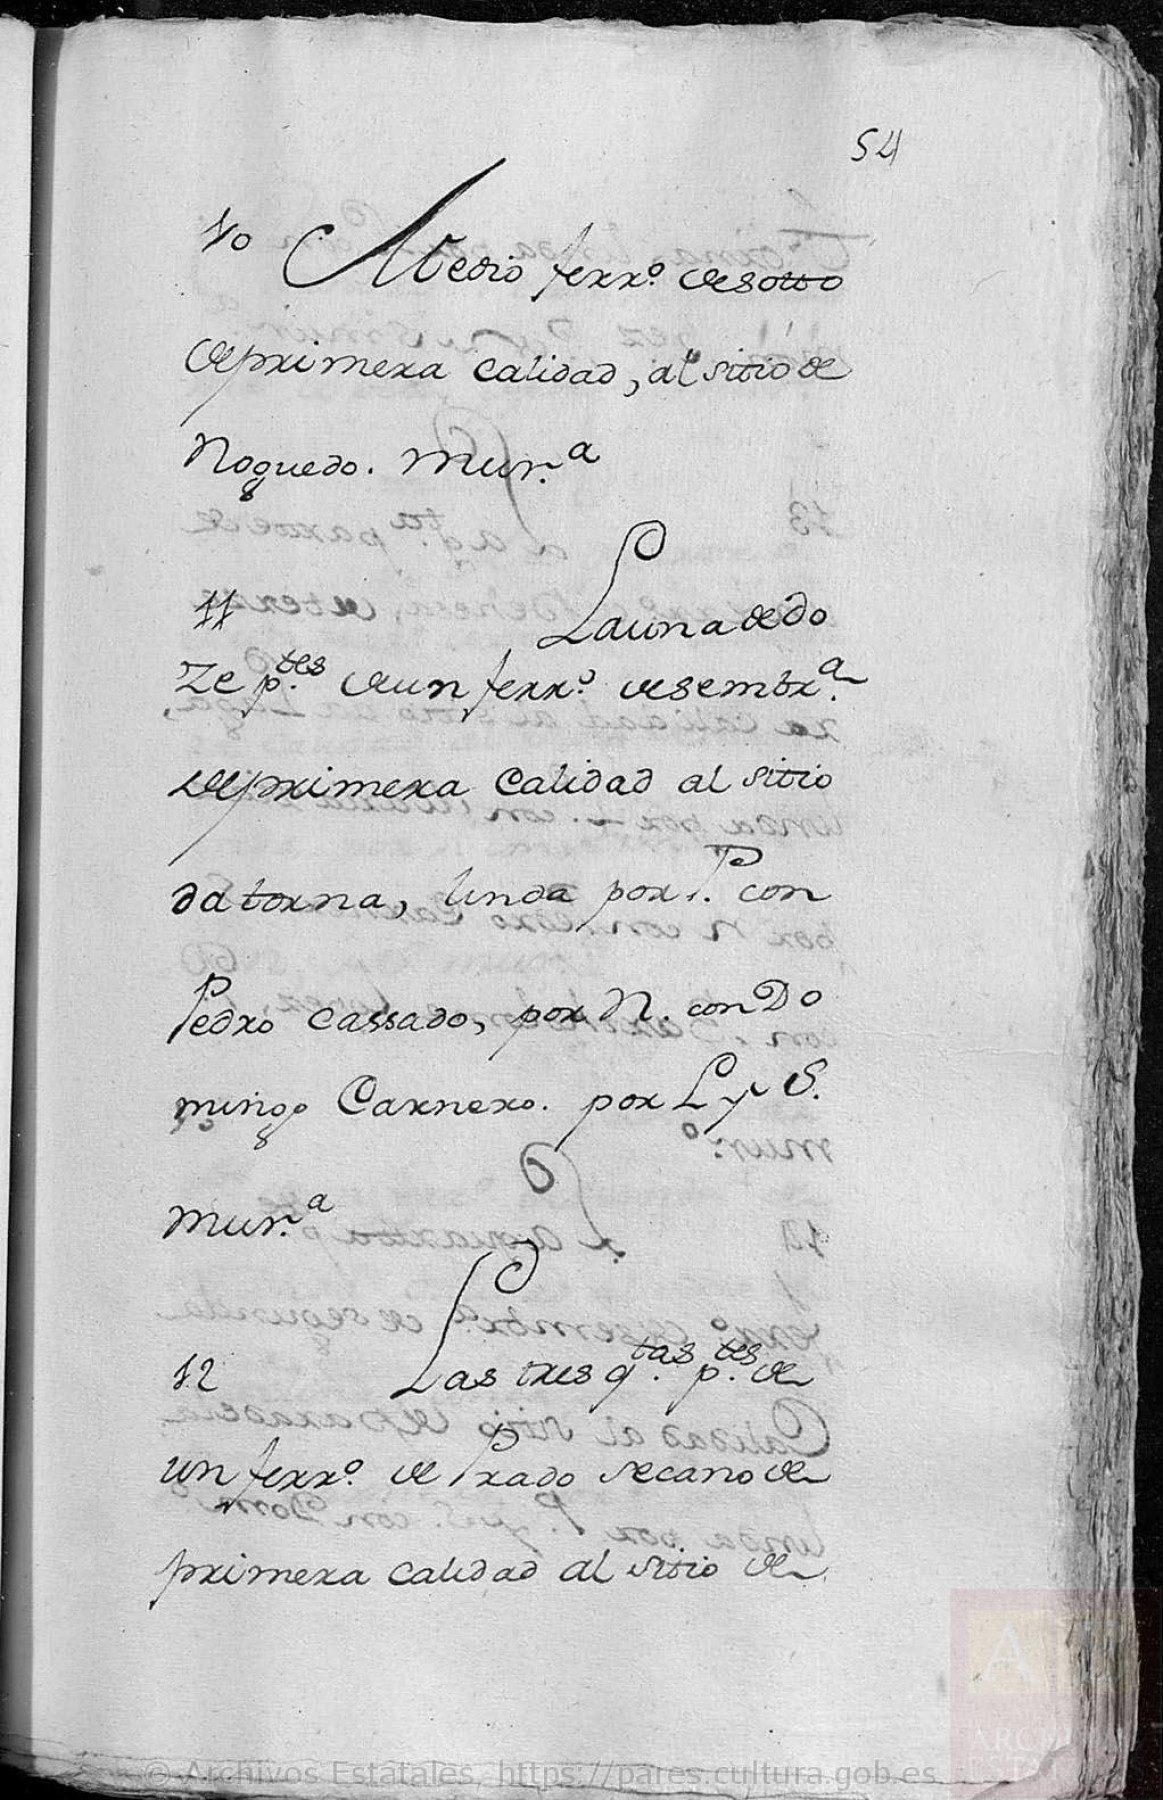 54
10 Medio ferr.º de sotto
de primera calidad, al sitio de
Noguedo. mur.ª
11 La una de do
ze p.tes de un ferr.º de sembr.ª
de primera calidad al sitio
da torna, linda por P. con
Pedro Cassado, por N. con Do
mingo Carnero. por L y S.
mur.ª
12 Las tres q.tas p.tes de
un ferr.º de Prado secano de
primera calidad al sitio de
© Archivos Estatales, https://pares.cultura.gob.es